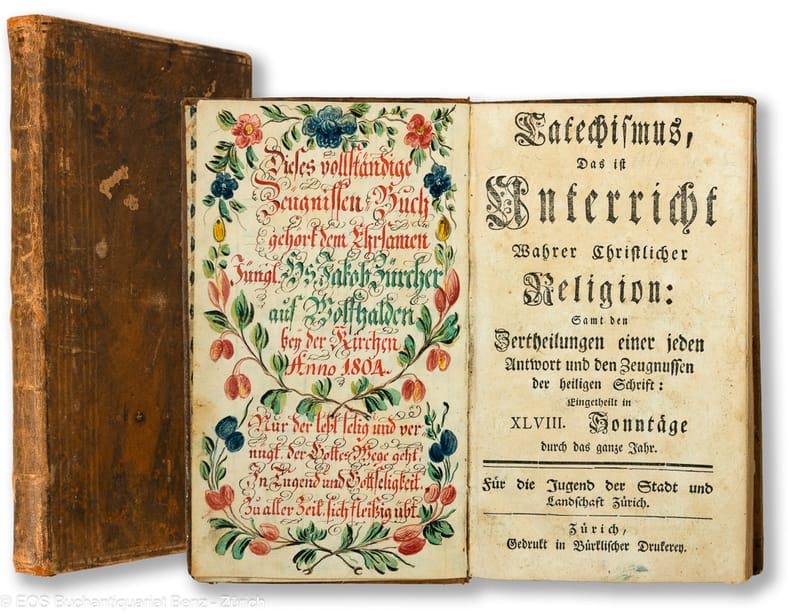 Dieses vollständige
Zeügnissen-Buch
gehört dem Ehrsamen
Jüngl. Hs Jakob Zürcher
auf Wolfhalden
bey der Kirchen
Anno 1804.
Nur der lebt selig und ver
nügt, der Gottes Wege geht,
In Tugend und Gottseligkeit,
Zu aller Zeit, sich fleißig übt.
Catechismus,
Das ist
Unterricht
Wahrer Christlicher
Religion:
Samt den
Zertheilungen einer jeden
Antwort und den Zeugnussen
der heiligen Schrift:
Eingetheilt in
XLVIII. Sonntäge
durch das ganze Jahr.
Für die Jugend der Stadt und
Landschaft Zürich.
Zürich,
Gedrukt in Bürklischer Drukerey.
© EOS Buchantiquariat Benz - Zürich